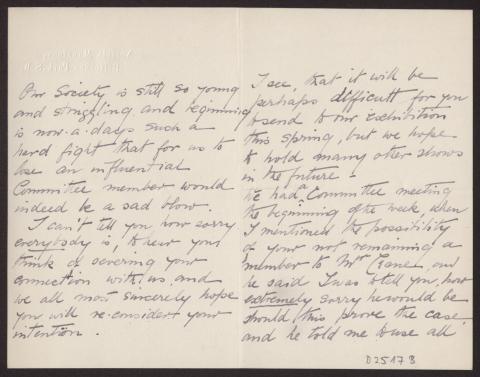 Our Society is still so young
and struggling, and beginning
is now-a-days such a
hard fight that for us to
lose an influential
Committee member would
indeed be a sad blow.
I can't tell you how sorry
everybody is, to hear you
think of severing your
connection with us, and
we all most sincerely hope
you will re-consider your
intention.
I see, that it will be
perhaps difficult for you
to send to our Exhibition
this spring, but we hope
to hold many other shows
in the future -
We had a Committee meeting
the beginning of the week, when
I mentioned the possibility
of your not remaining a
member to Mr Crane, and
he said I was to tell you, how
extremely sorry he would be
should this prove the case,
and he told me to use all
D 2517 8